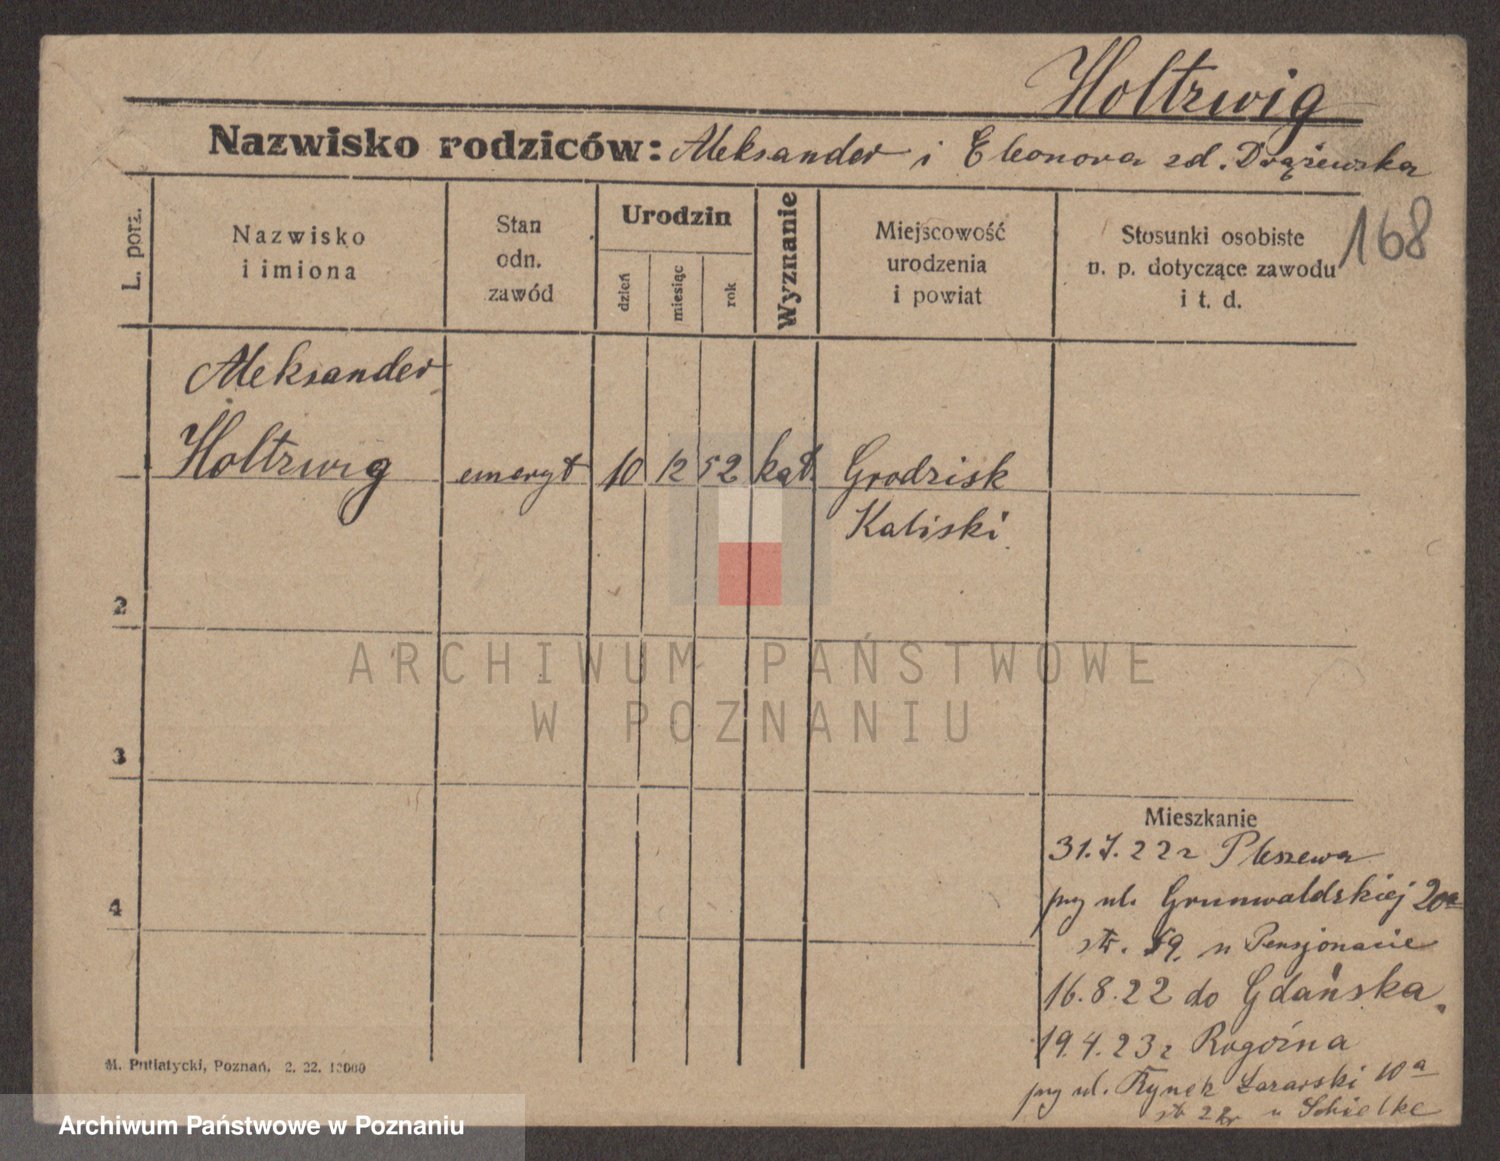 Holtzwig
Nazwisko rodziców: Aleksander i Eleonora zd. Drążewska
168
L. porz.
Nazwisko
i imiona
Stan
odn.
zawód
Urodzin
dzień
miesiąc
rok
Wyznanie
Miejscowość
urodzenia
i powiat
Stosunki osobiste
n. p. dotyczące zawodu
i t. d.
Aleksander
Holtzwig emeryt 10 12 52 kat. Grodzisk
Kaliski
2
3
4
ARCHIWUM PAŃSTWOWE
W POZNANIU
Mieszkanie
31.7.22 z Pleszewa
przy ul. Grunwaldzkiej 20a
str. 59. u Pensjonacie
16.8.22 do Gdańska.
19.4.23 z Rogoźna
przy ul. Rynek Łazarski 10a
u Schielke
M. Putiatycki, Poznań. 2. 22. 12000
Archiwum Państwowe w Poznaniu